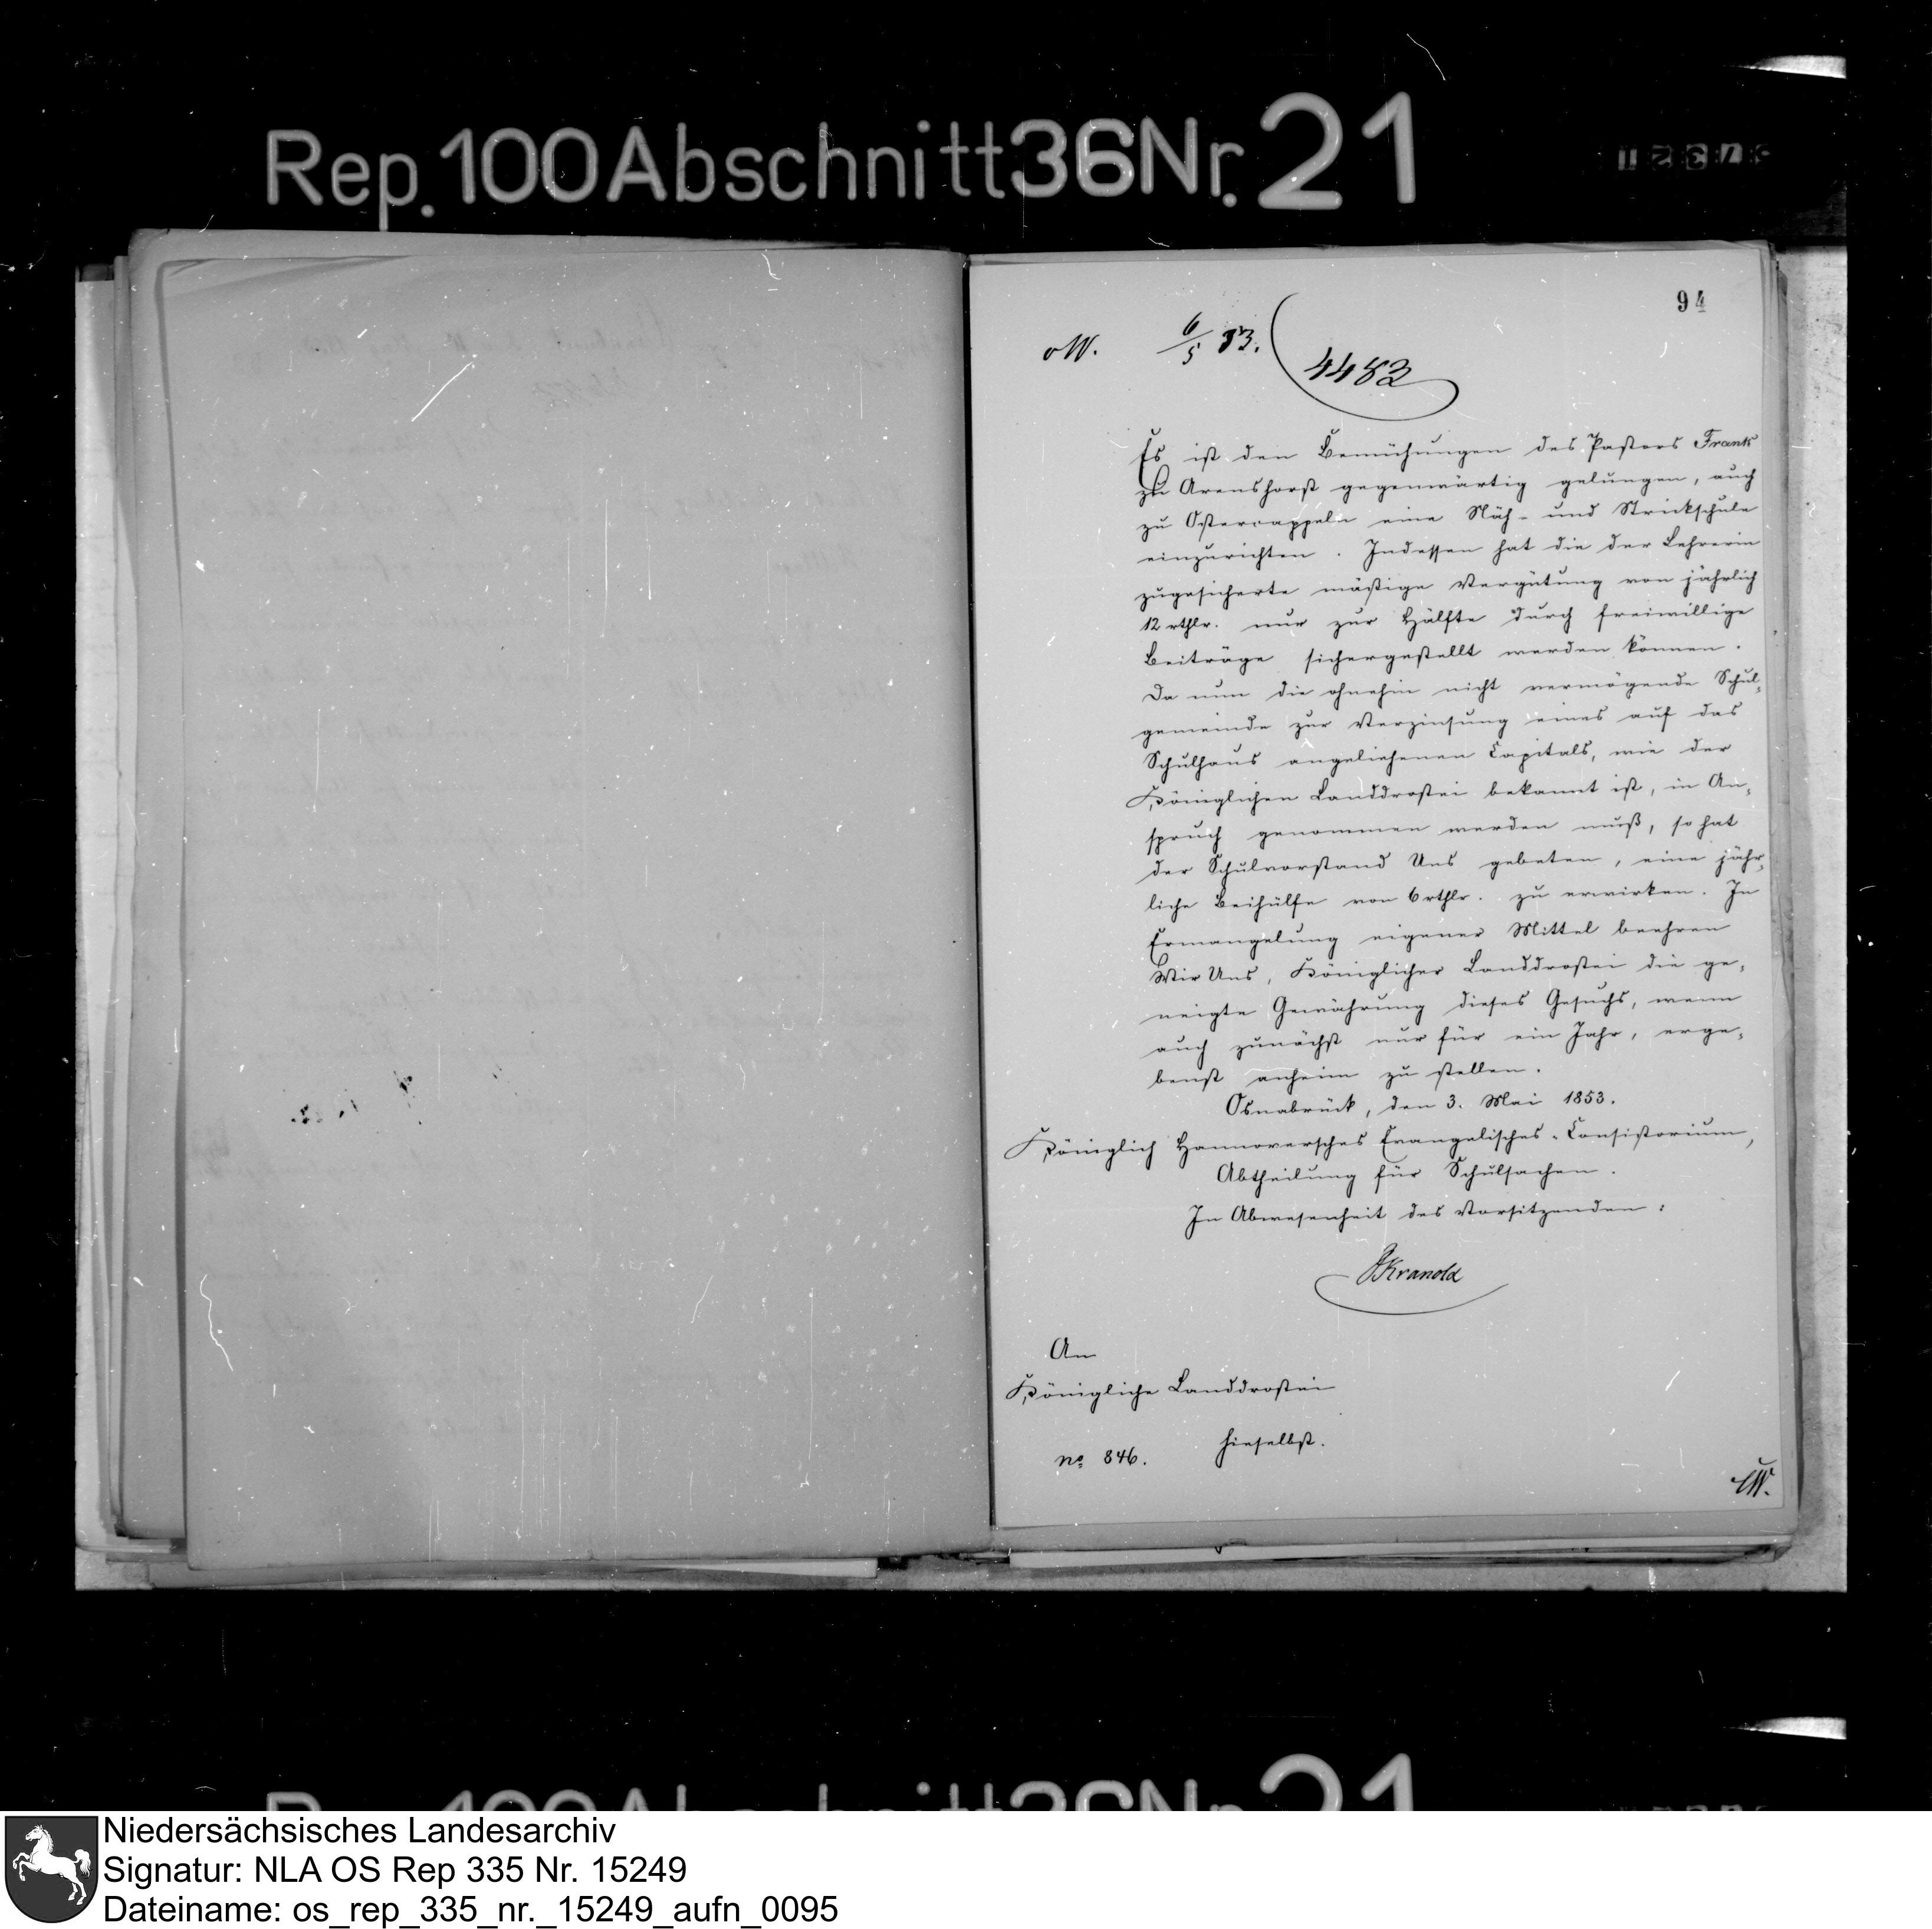 Rep. 100 Abschnitt 36 Nr. 21
94
6/5 53.
4482
Es ist den Bemühungen des Pastors Frank
zu Arenshorst gegenwärtig gelungen, auch
zu Ostercappeln eine Näh- und Strickschule
einzurichten. Indessen hat die der Lehrerin
zugesicherte mäßige Vergütung von jährlich
12 rthlr. nur zur Hälfte durch freiwillige
Beiträge sichergestellt werden können.
Da nun die ohnehin nicht vermögende Schul-
gemeinde zur Verzinsung eines auf das
Schulhaus angeliehenen Capitals, wie der
Königlichen Landdrostei bekannt ist, in An-
spruch genommen werden muß, so hat
der Schulvorstand Uns gebeten, eine jähr-
liche Beihülfe von 6 rthlr. zu erwirken. In
Ermangelung eigener Mittel beehren
Wir Uns, Königlicher Landdrostei die ge-
neigte Gewährung dieses Gesuchs, wenn
auch zunächst nur für ein Jahr, erge-
benst anheim zu stellen.
Osnabrück, den 3. Mai 1853.
Königlich Hannoversches Evangelisches-Consistorium,
Abtheilung für Schulsachen.
In Abwesenheit des Vorsitzenden:
Kranold
An
Königliche Landdrostei
hieselbst.
no 846.
Niedersächsisches Landesarchiv
Signatur: NLA OS Rep 335 Nr. 15249
Dateiname: os_rep_335_nr._15249_aufn_0095